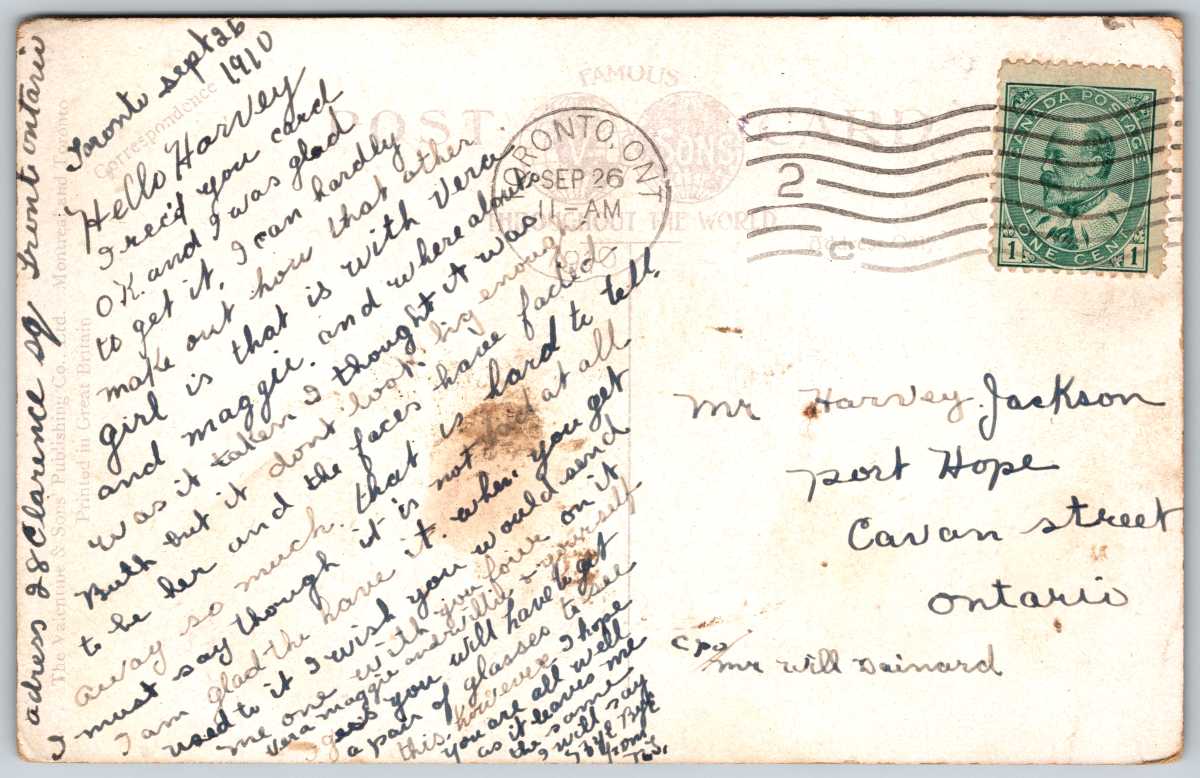 adress 28 Clarence sq Tronto ontario
Tronto sept 26
1910
Hello Harvey
I rec'd you card
OK and I was glad
to get it. I can hardly
make out how that other
girl is that is with Vera
and maggie. and where abouts
was it taken I thought it was
Buth but it dont look big enough
to be her and the faces have faded
away so much. that is hard to tell
I must say though it is not at all
I am glad the have it. when you get
used to it I wish you would send
me one with you four on it
vera maggie and willie + yourself
I gess you will have to get
a pair of glasses to see
this. however I hope
you are all well
as it leaves me
the same
I will say
Bye Bye
from
Correspondence
The Valentine & Sons Publishing Co., Ltd. Montreal and Toronto
Printed in Great Britain
POST CARD
FAMOUS
VAL SONS
THROUGHOUT THE WORLD
Address Only
TORONTO, ONT
SEP 26
11-AM
1910
2
C
CANADA POSTAGE
1 ONE CENT 1
Mr Harvey Jackson
port Hope
Cavan street
ontario
c/o
mr will Dainard